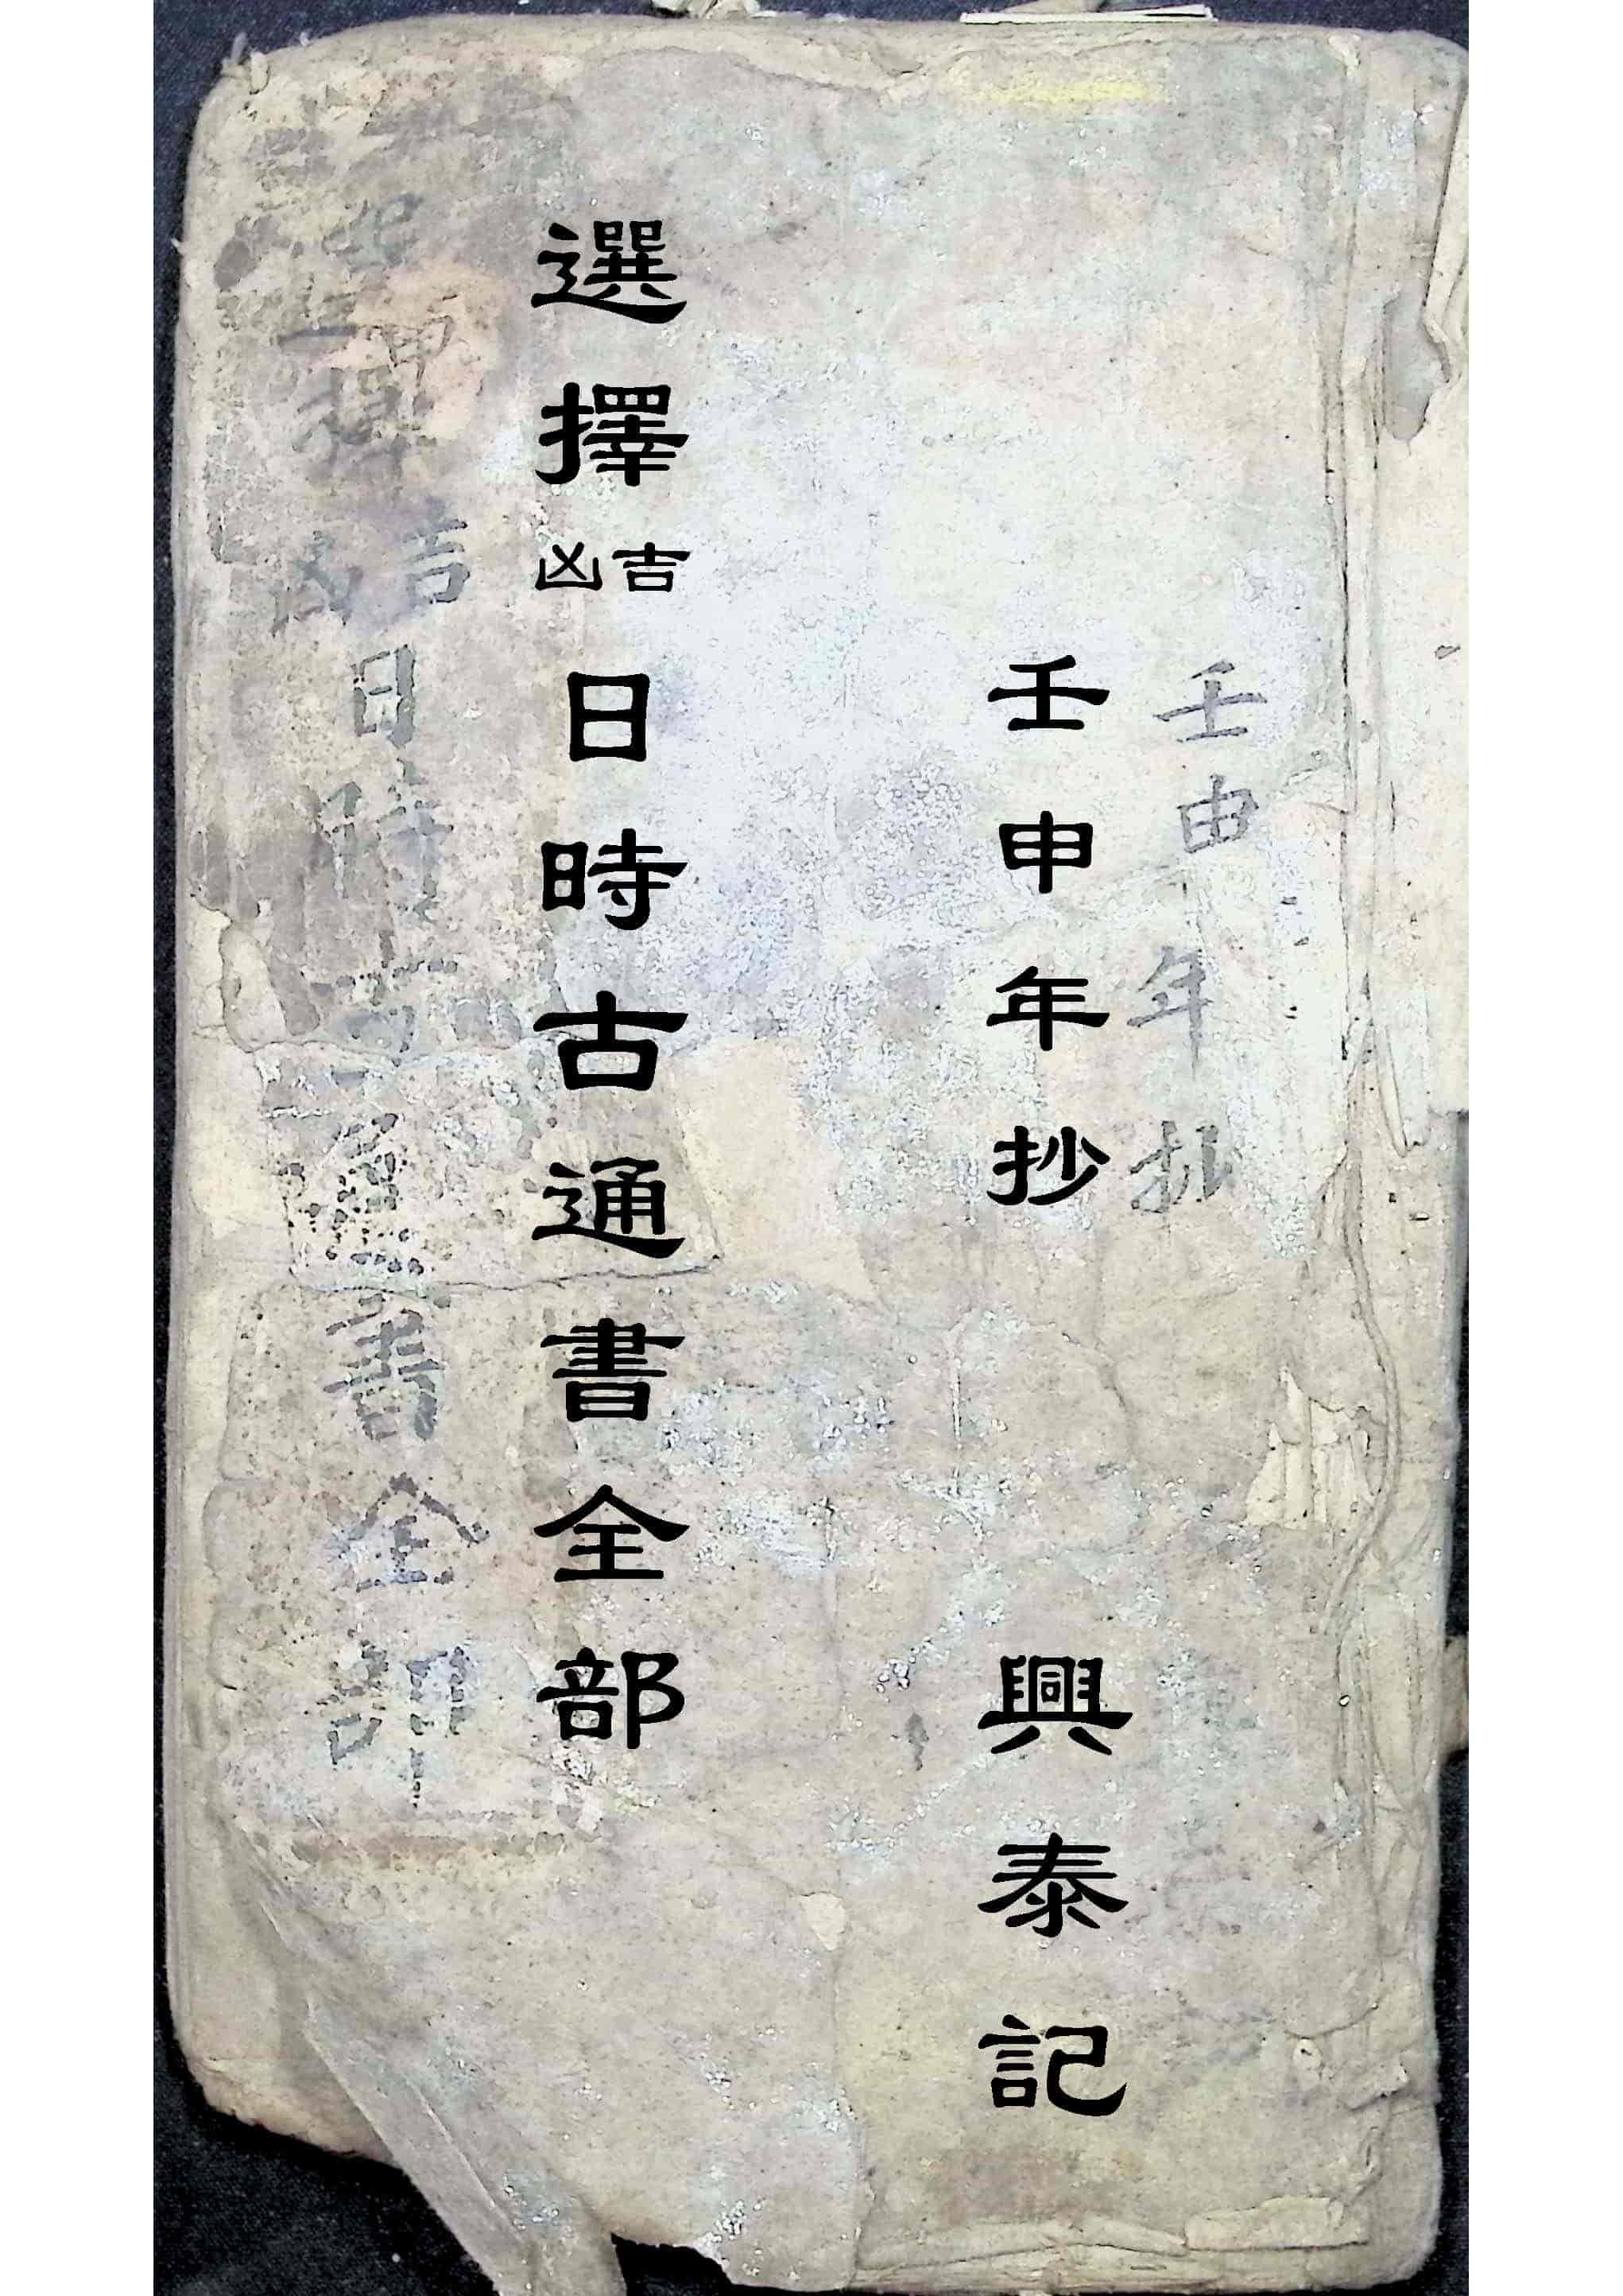 壬申年抄
壬申年抄
興泰記
選擇吉凶日時古通書全部
吉
日時
書全部